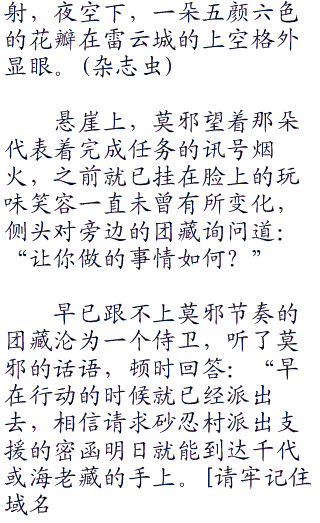 射，夜空下，一朵五颜六色
的花瓣在雷云城的上空格外
显眼。(杂志虫)
悬崖上，莫邪望着那朵
代表着完成任务的讯号烟
火，之前就已挂在脸上的玩
味笑容一直未曾有所变化，
侧头对旁边的团藏询问道：
“让你做的事情如何？”
早已跟不上莫邪节奏的
团藏沦为一个侍卫，听了莫
邪的话语，顿时回答：“早
在行动的时候就已经派出
去，相信请求砂忍村派出支
援的密函明日就能到达千代
或海老藏的手上。[请牢记住
域名